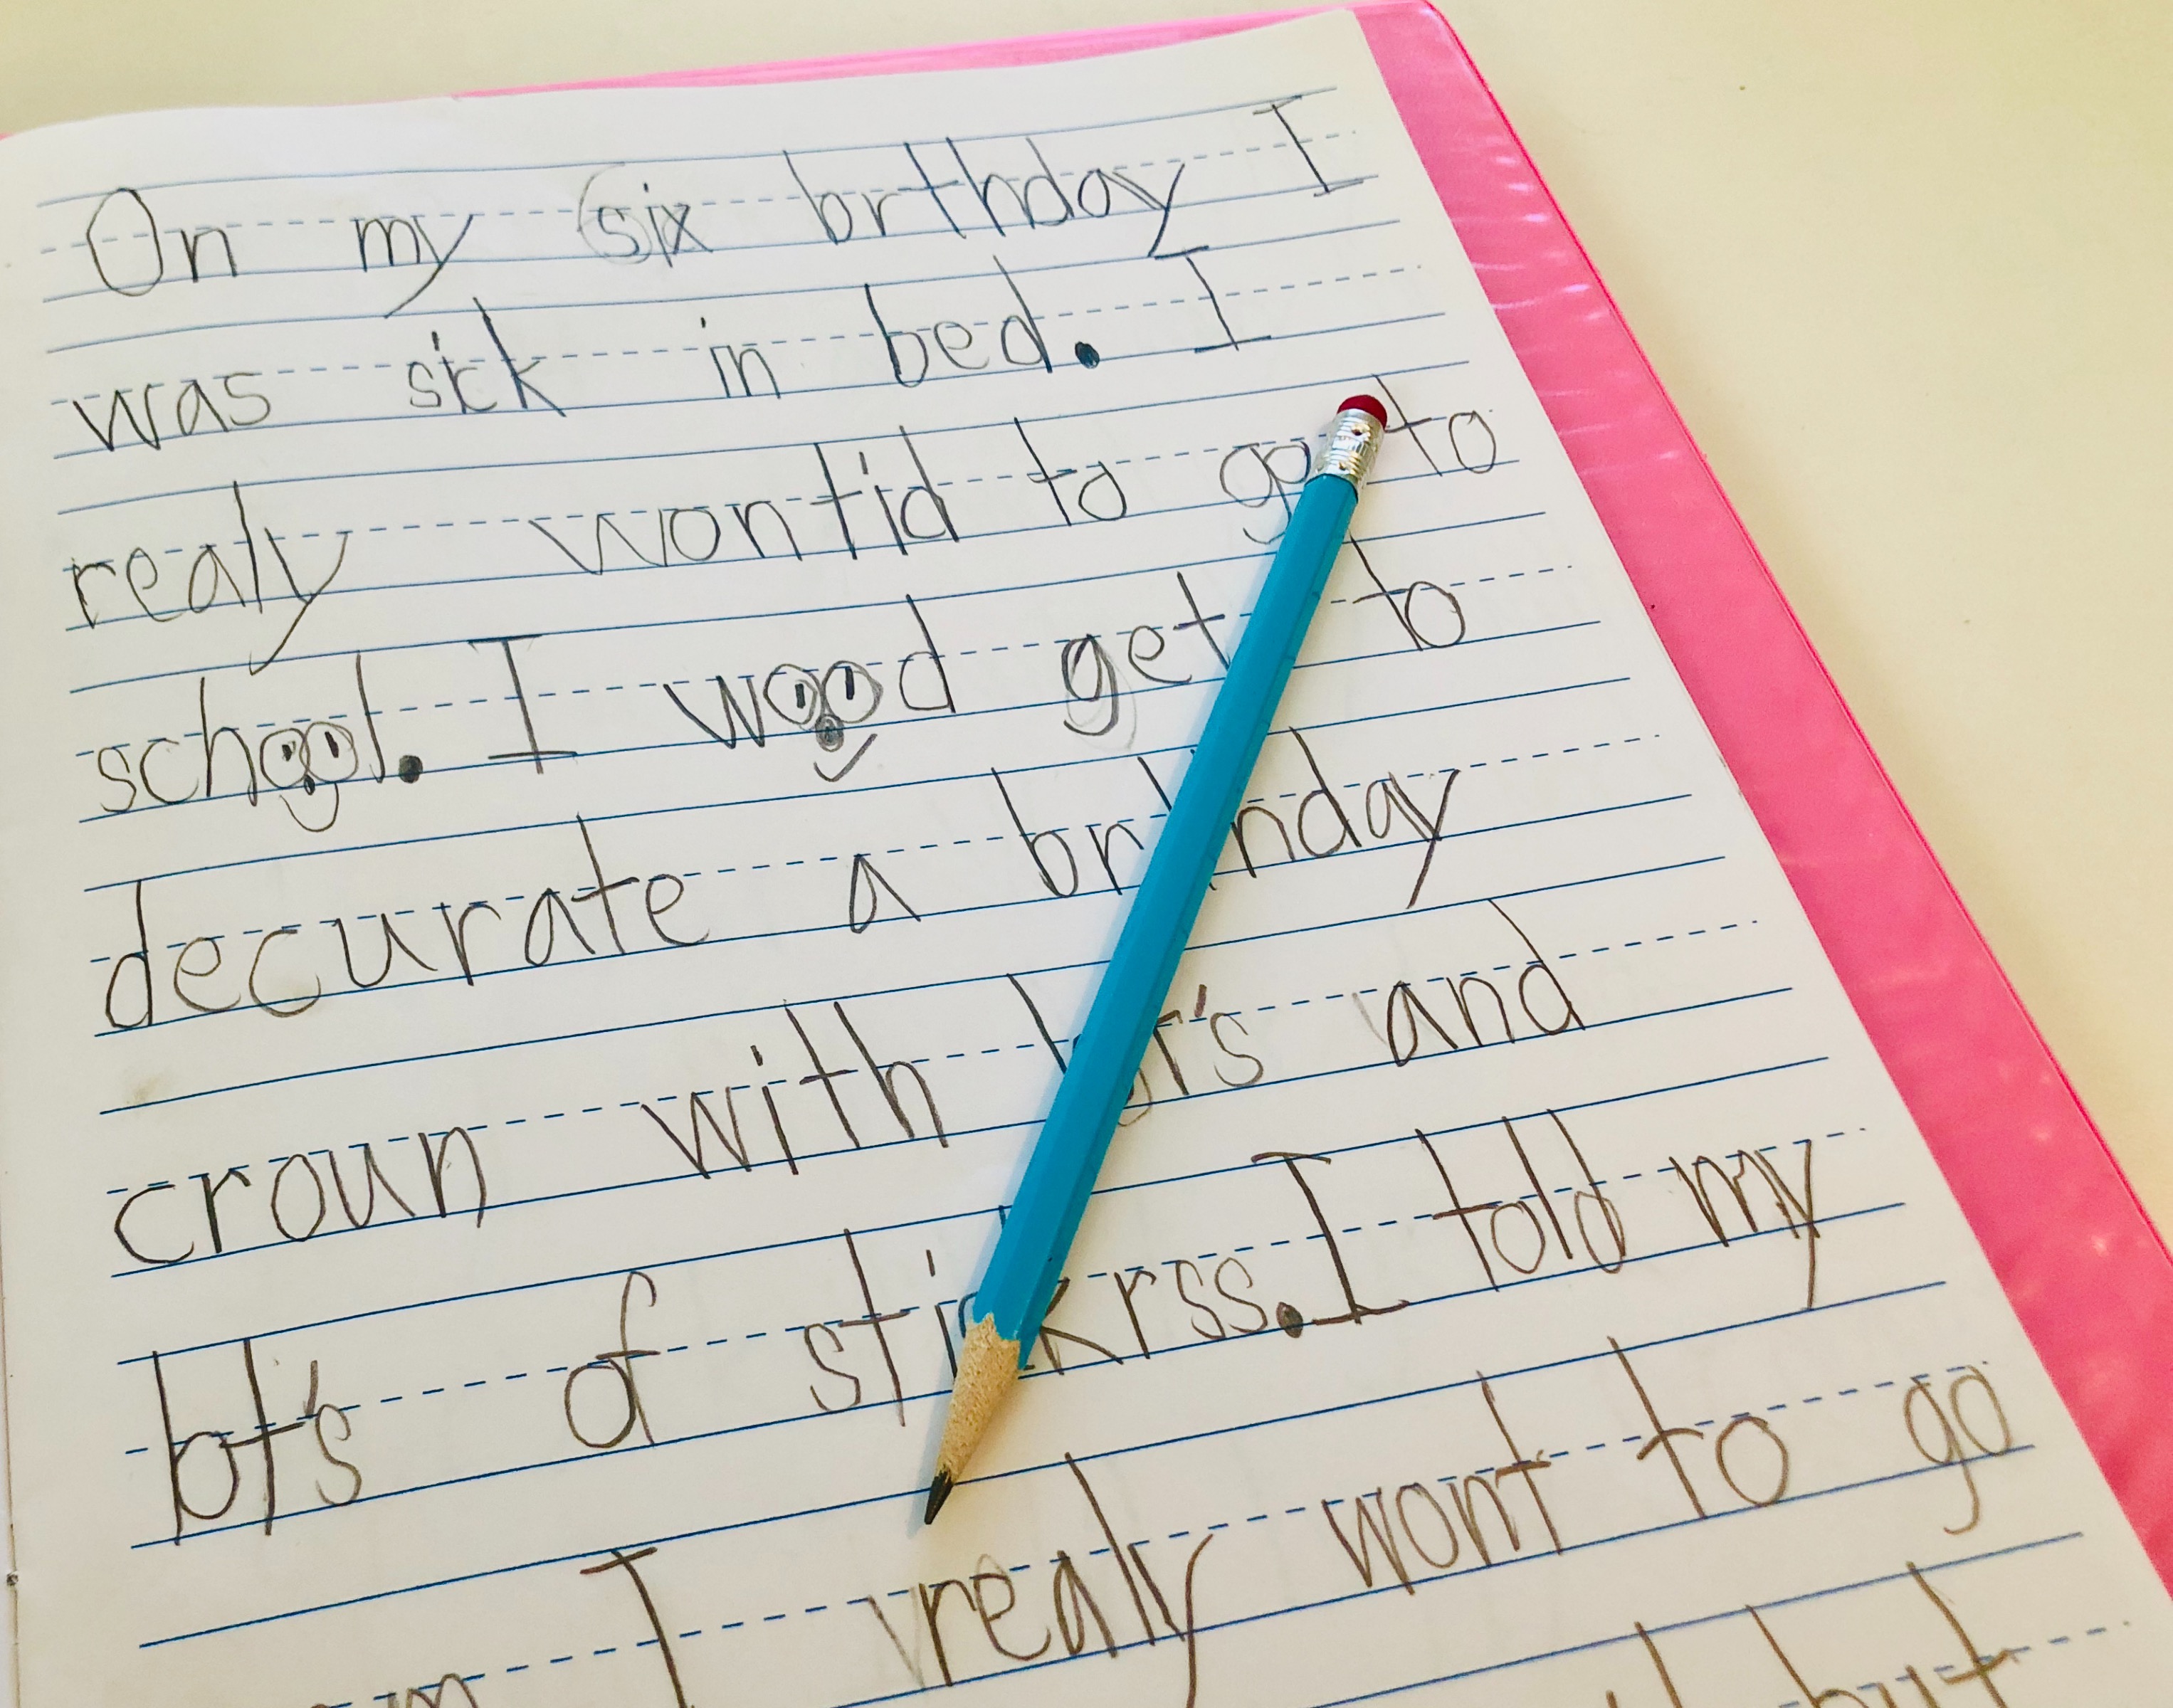 On my six brthday I
was sick in bed. I
realy wontid to go to
school. I wood get to
decurate a brthday
croun with and
lot's of stickrss. I told my
I realy wont to go
but